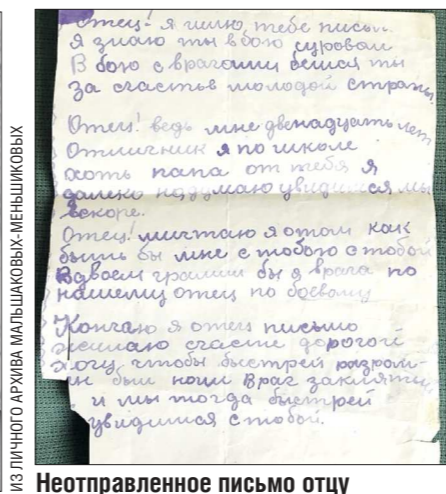 Отец! я пишу тебе письм
Я знаю ты в бою суровом
В бою с врагами бьешся ты
За счастье молодой страны.
Отец! ведь мне двенадцать лет
Отличник я по школе
хоть папа от тебя я
далеко но думаю увидимся мы
вскоре.
Отец! мечтаю я о том как
быть бы мне с тобою с тобой
Вдвоем громили бы я врага по
нашему отец по боевому
Кончаю я отец письмо
желаю счастье дорогой
Хочу чтобы быстрей разгром-
ен был наш Враг заклятый
и мы тогда быстрей
увидимся с тобой.
ИЗ ЛИЧНОГО АРХИВА МАЛЬШАКОВЫХ-МЕНЬШИКОВЫХ
Неотправленное письмо отцу